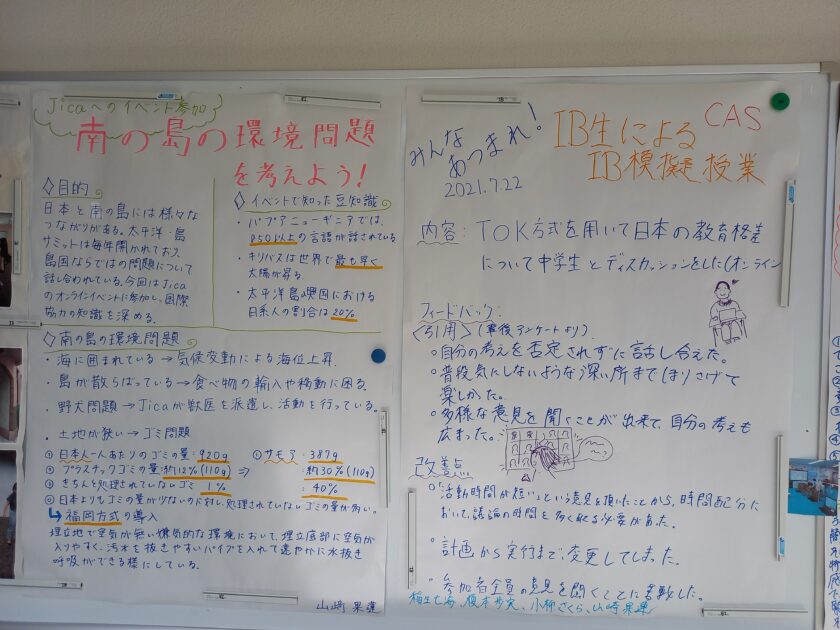 Jicaへのイベント参加
南の島の環境問題
を考えよう!
◇目的
日本と南の島には様々な
つながりがある。太平洋・島
サミットは毎年開かれており、
島国ならではの問題について
話し合われている。今回はJica
のオンラインイベントに参加し、国際
協力の知識を深める。
◇イベントで知った豆知識
・パプアニューギニアでは、
850以上の言語が話されている
・キリバスは世界で最も早く
太陽が昇る。
・太平洋島嶼国における
日系人の割合は20%
◇南の島の環境問題
・海に囲まれている→気候変動による海位上昇.
・島が散らばっている→食べ物の輸入や移動に困る.
・野犬問題→Jicaが獣医を派遣し、活動を行っている。
・土地が狭い→ゴミ問題
① 日本人一人あたりのゴミの量:920g ①サモア:387g
② プラスチックゴミの量:約12%(110g) ⇒ :約30%(110g)
③ きちんと処理されていないゴミ 1% :40%
日本よりもゴミの量が少ないのに対し、処理されていないゴミの量が多い。
↳福岡方式の導入
埋立地で空気が無い嫌気的な環境において、埋立底部に空気が
入りやすく、汚水を抜きやすいパイプを入れて速やかに水抜き
呼吸ができる様にしている。
山﨑 果蓮
みんな
あつまれ!
2021.7.22
IB生による CAS
IB模擬授業
内容:TOK方式を用いて日本の教育格差
について中学生とディスカッションをした(オンライン
フィードバック:
〈引用〉(事後アンケートより).
○自分の考えを否定されずに話し合えた。
○普段気にしないような深い所までほりさげて
楽しかった。
○多様な意見を聞くことが出来て、自分の考えも
広まった。
改善点
○「活動時間が短い」という意見を頂いたことから、時間配分に
おいて議論の時間を多く取る必要があった。
・計画から実行まで、変更してしまった。
・参加者全員の意見を聞くことに苦戦した。
小柳さくら、山﨑果蓮